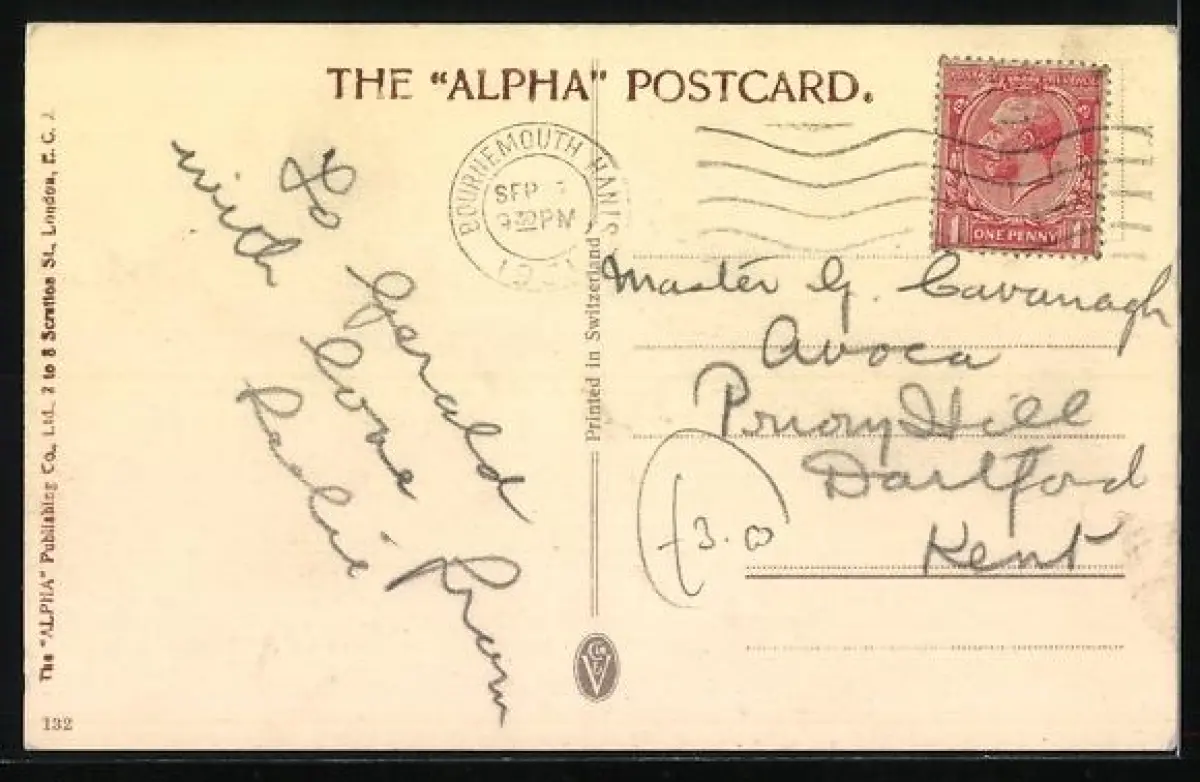 THE "ALPHA" POSTCARD.
BOURNEMOUTH HANTS
SEP
9 30 PM
ONE PENNY
To Gerald From
with love
Printed in Switzerland
Master G. Cavanagh
Avoca
Priory Hill
Dartford
Kent
£3.00
The "ALPHA" Publishing Co., Ltd., 2 to 8 Scrutton St., London, E. C. 2.
132